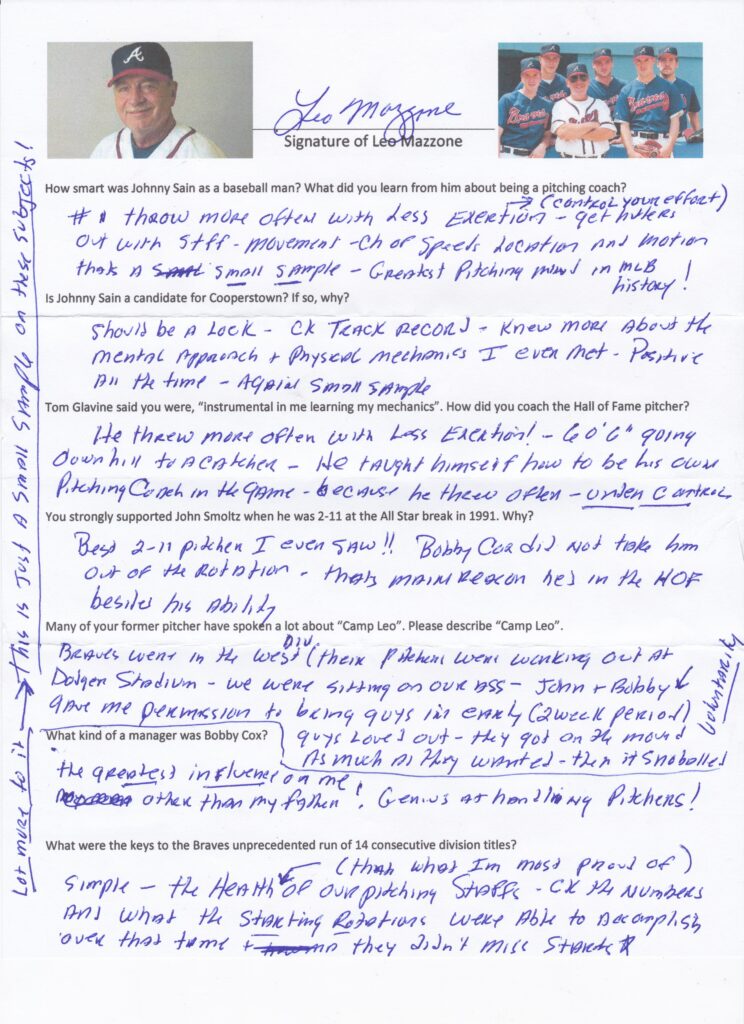 Leo Mazzone
Signature of Leo Mazzone
How smart was Johnny Sain as a baseball man? What did you learn from him about being a pitching coach?
→ (control your effort)
#1 throw more often with Less Exertion - get hitters
out with stff - movement - Ch of Speeds Location and motion
thats a small sample - Greatest Pitching mind in MLB
history!
Is Johnny Sain a candidate for Cooperstown? If so, why?
Should be a Lock - CK TRACK RECORD - Knew more About the
mental Approach + Physical mechanics I ever met - Positive
All the time - Again small sample
Tom Glavine said you were, "instrumental in me learning my mechanics". How did you coach the Hall of Fame pitcher?
He threw more often with Less Exertion! - 60'6" going
Downhill to a catcher - He taught himself how to be his own
Pitching Coach in the game - because he threw often - under control
You strongly supported John Smoltz when he was 2-11 at the All Star break in 1991. Why?
Best 2-11 pitcher I ever saw!! Bobby Cox did not take him
out of the Rotation - thats main reason he's in the HOF
besides his Ability
Many of your former pitcher have spoken a lot about "Camp Leo". Please describe "Camp Leo".
Braves were in the west Div. (their pitchers were working out at
Dodger Stadium - we were sitting on our ass - John + Bobby
gave me permission to bring guys in early (2 week period)
voluntarily
guys Loved out - they got on the mound
As much as they wanted - then it snoballed
What kind of a manager was Bobby Cox?
the greatest influence on me
other than my father! Genius at handling Pitchers!
What were the keys to the Braves unprecedented run of 14 consecutive division titles?
(thats what Im most proud of)
Simple - the Health of our pitching Staffs - CK the Numbers
And what the Starting Rotations were Able to Accomplish
over that time + they didn't miss Starts
Lot more to it → This is Just A Small Sample on these subjects!
A
Braves